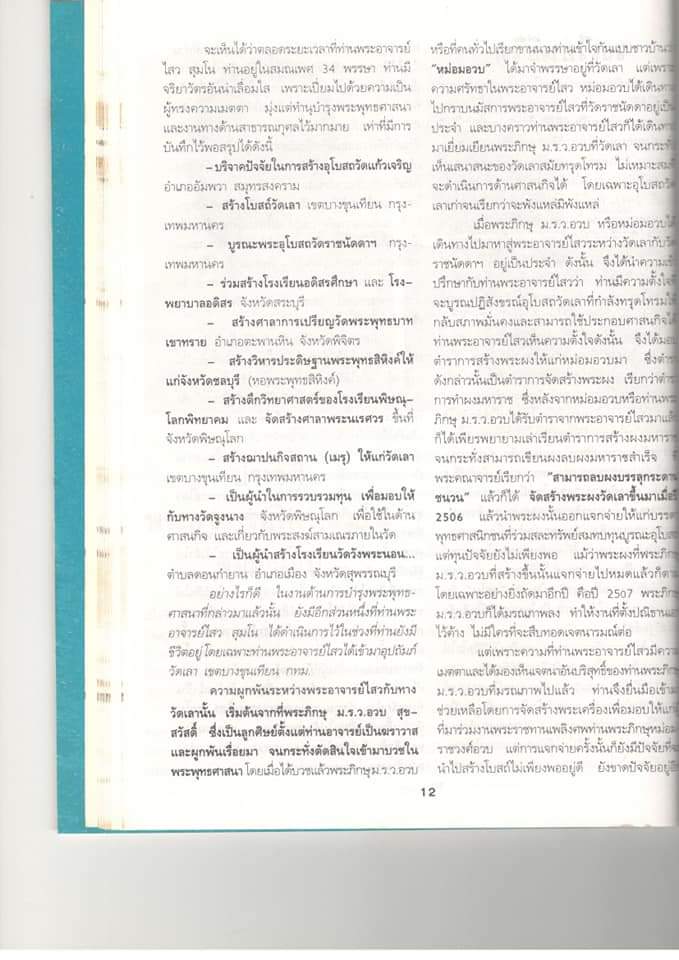 จะเห็นได้ว่าตลอดระยะเวลาที่ท่านพระอาจารย์
ไสว สุมโน ท่านอยู่ในสมณเพศ 34 พรรษา ท่านมี
จริยาวัตรอันน่าเลื่อมใส เพราะเปี่ยมไปด้วยความเป็น
ผู้ทรงความเมตตา มุ่งแต่ทำนุบำรุงพระพุทธศาสนา
และงานทางด้านสาธารณกุศลไว้มากมาย เท่าที่มีการ
บันทึกไว้พอสรุปได้ดังนี้
–บริจาคปัจจัยในการสร้างอุโบสถวัดแก้วเจริญ
อำเภออัมพวา สมุทรสงคราม
– สร้างโบสถ์วัดเลา เขตบางขุนเทียน กรุง-
เทพมหานคร
– บูรณะพระอุโบสถวัดราชนัดดาฯ กรุง-
เทพมหานคร
– ร่วมสร้างโรงเรียนอดิสรศึกษา และ โรง-
พยาบาลอดิสร จังหวัดสระบุรี
– สร้างศาลาการเปรียญวัดพระพุทธบาท
เขาทราย อำเภอตะพานหิน จังหวัดพิจิตร
– สร้างวิหารประดิษฐานพระพุทธสิหิงค์ให้
แก่จังหวัดชลบุรี (หอพระพุทธสิหิงค์)
– สร้างตึกวิทยาศาสตร์ของโรงเรียนพิษณุ-
โลกพิทยาคม และ จัดสร้างศาลาพระนเรศวร ขึ้นที่
จังหวัดพิษณุโลก
– สร้างฌาปนกิจสถาน (เมรุ) ให้แก่วัดเลา
เขตบางขุนเทียน กรุงเทพมหานคร
– เป็นผู้นำในการรวบรวมทุน เพื่อมอบให้
กับทางวัดจูงนาง จังหวัดพิษณุโลก เพื่อใช้ในด้าน
ศาสนกิจ และเกี่ยวกับพระสงฆ์สามเณรภายในวัด
– เป็นผู้นำสร้างโรงเรียนวัดวังพระนอน...
ตำบลดอนกำยาน อำเภอเมือง จังหวัดสุพรรณบุรี
อย่างไรก็ดี ในงานด้านการบำรุงพระพุทธ-
ศาสนาที่กล่าวมาแล้วนั้น ยังมีอีกส่วนหนึ่งที่ท่านพระ
อาจารย์ไสว สุมโน ได้ดำเนินการไว้ในช่วงที่ท่านยังมี
ชีวิตอยู่ โดยเฉพาะท่านพระอาจารย์ไสวได้เข้ามาอุปถัมภ์
วัดเลา เขตบางขุนเทียน กทม.
ความผูกพันระหว่างพระอาจารย์ไสวกับทาง
วัดเลานั้น เริ่มต้นจากที่พระภิกษุ ม.ร.ว.อวบ สุข-
สวัสดิ์ ซึ่งเป็นลูกศิษย์ตั้งแต่ท่านอาจารย์เป็นฆราวาส
และผูกพันเรื่อยมา จนกระทั่งตัดสินใจเข้ามาบวชใน
พระพุทธศาสนา โดยเมื่อได้บวชแล้วพระภิกษุ ม.ร.ว.อวบ
หรือที่คนทั่วไปเรียกขานนามท่านเข้าใจกันแบบชาวบ้าน
“หม่อมอวบ” ได้มาจำพรรษาอยู่ที่วัดเลา แต่เพราะ
ความศรัทธาในพระอาจารย์ไสว หม่อมอวบได้เดินทาง
ไปกราบนมัสการพระอาจารย์ไสวที่วัดราชนัดดาอยู่เป็น
ประจำ และบางคราวท่านพระอาจารย์ไสวก็ได้เดินทาง
มาเยี่ยมเยียนพระภิกษุ ม.ร.ว.อวบที่วัดเลา จนกระทั่ง
เห็นเสนาสนะของวัดเลาสมัยทรุดโทรม ไม่เหมาะสม
จะดำเนินการด้านศาสนกิจได้ โดยเฉพาะอุโบสถวัด
เลาเก่าจนเรียกว่าจะพังแหล่มิพังแหล่
เมื่อพระภิกษุ ม.ร.ว.อวบ หรือหม่อมอวบได้
เดินทางไปมาหาสู่พระอาจารย์ไสวระหว่างวัดเลากับวัด
ราชนัดดาฯ อยู่เป็นประจำ ดังนั้น จึงได้นำความเข้า
ปรึกษากับท่านพระอาจารย์ไสวว่า ท่านมีความตั้งใจที่
จะบูรณปฏิสังขรณ์อุโบสถวัดเลาที่กำลังทรุดโทรมให้
กลับสภาพมั่นคงและสามารถใช้ประกอบศาสนกิจได้
ท่านพระอาจารย์ไสวเห็นความตั้งใจดังนั้น จึงได้มอบ
ตำราการสร้างพระผงให้แก่หม่อมอวบมา ซึ่งตำรา
ดังกล่าวนั้นเป็นตำราการจัดสร้างพระผง เรียกว่าตำรา
การทำผงมหาราช ซึ่งหลังจากหม่อมอวบหรือท่านพระ
ภิกษุ ม.ร.ว.อวบได้รับตำราจากพระอาจารย์ไสวมาแล้ว
ก็ได้เพียรพยายามเล่าเรียนตำราการสร้างผงมหาราช
จนกระทั่งสามารถเรียนผงลบผงมหาราชสำเร็จ ที่
พระคณาจารย์เรียกว่า “สามารถลบผงบรรลุกระดาน
ชนวน” แล้วก็ได้ จัดสร้างพระผงวัดเลาขึ้นมาเมื่อปี
2506 แล้วนำพระผงนั้นออกแจกจ่ายให้แก่บรรดา
พุทธศาสนิกชนที่ร่วมสละทรัพย์สมทบทุนบูรณะอุโบสถ
แต่ทุนปัจจัยยังไม่เพียงพอ แม้ว่าพระผงที่พระภิกษุ
ม.ร.ว.อวบที่สร้างขึ้นนั้นแจกจ่ายไปหมดแล้วก็ตาม
โดยเฉพาะอย่างยิ่งถัดมาอีกปี คือปี 2507 พระภิกษุ
ม.ร.ว.อวบก็ได้มรณภาพลง ทำให้งานที่ตั้งปณิธานเอา
ไว้ค้าง ไม่มีใครที่จะสืบทอดเจตนารมณ์ต่อ
แต่เพราะความที่ท่านพระอาจารย์ไสวมีความ
เมตตาและได้มองเห็นเจตนาอันบริสุทธิ์ของท่านพระภิกษุ
ม.ร.ว.อวบที่มรณภาพไปแล้ว ท่านจึงยื่นมือเข้ามา
ช่วยเหลือโดยการจัดสร้างพระเครื่องเพื่อมอบให้แก่ผู้
ที่มาร่วมงานพระราชทานเพลิงศพท่านพระภิกษุหม่อม
ราชวงศ์อวบ แต่การแจกจ่ายครั้งนั้นก็ยังมีปัจจัยที่จะ
นำไปสร้างโบสถ์ไม่เพียงพออยู่ดี ยังขาดปัจจัยอยู่อีก
12